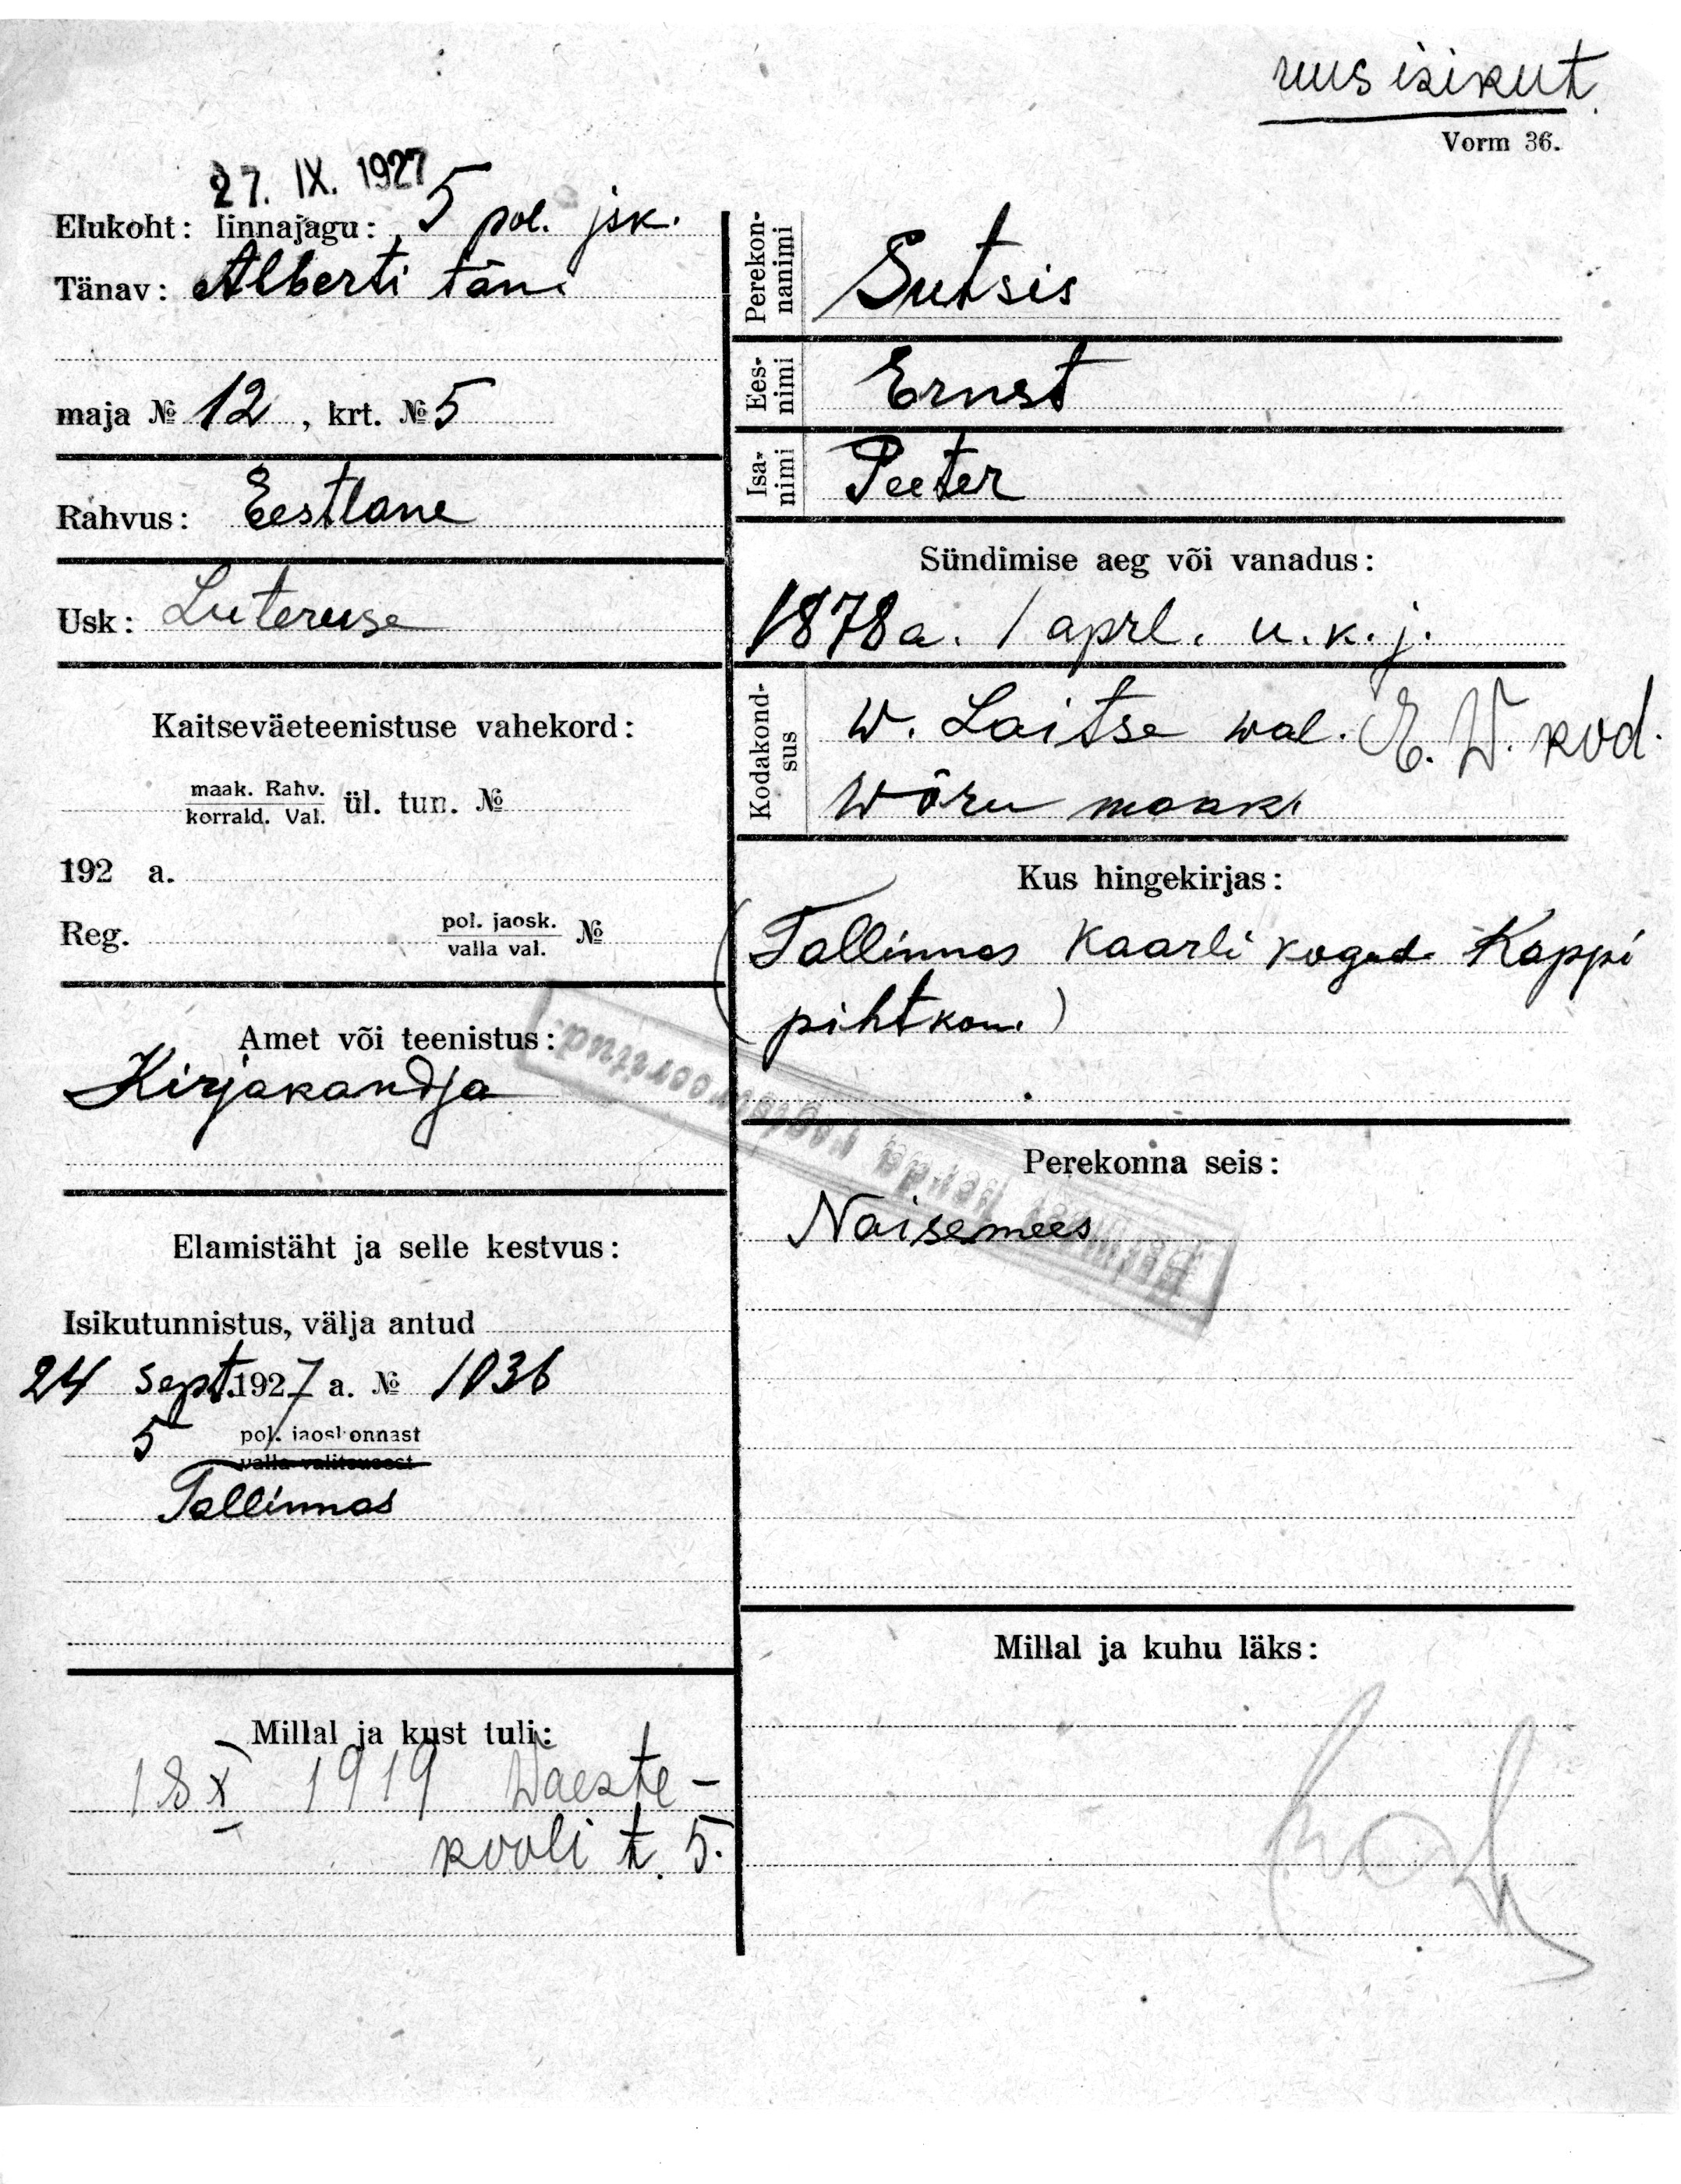 uus isikut.
Vorm 36.
27. IX. 1927
Elukoht: linnajagu: 5 pol. jsk.
Tänav: Alberti tän.
maja № 12, krt. № 5
Rahvus: Eestlane
Usk: Luteruse
Kaitseväeteenistuse vahekord:
maak. Rahv.
korrald. Val. ül. tun. №
192 a.
Reg. pol. jaosk. №
valla val.
Amet või teenistus:
Kirjakandja
Elamistäht ja selle kestvus:
Isikutunnistus, välja antud
24 sept. 1927 a. № 1036
5 pol. jaoskonnast
valla valitsusest
Tallinnas
Millal ja kust tuli:
18 X 1919 Waeste-
kooli t. 5.
Perekon-
nanimi
Sutsis
Ees-
nimi
Ernst
Isa-
nimi
Peeter
Sündimise aeg või vanadus:
1878 a. 1 aprl. u. k. j.
Kodakond-
sus
W. Laitse wal. E. W. kod.
Wõru maak.
Kus hingekirjas:
(Tallinnas Kaarli kogud. Kappi
pihtkon.)
Perekonna seis:
Naisemees
Millal ja kuhu läks: